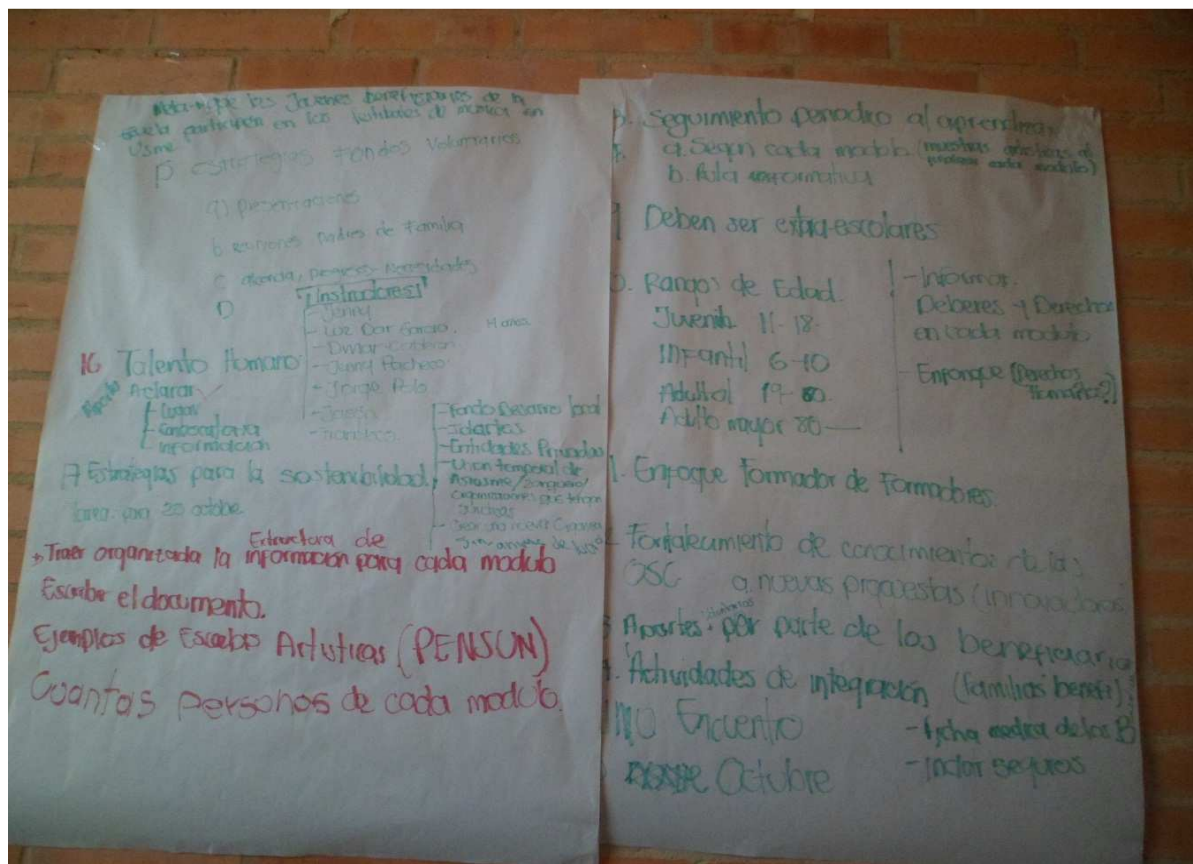 que los Jovenes beneficiarios de la
escuela participen en los festivales de musica en
Usme
estrategias Fondos Voluntarios
a) presentaciones
b reuniones padres de Familia
c agenda, progresos Necesidades
D
Instructores
- Jenny
- Luz Dar
- Calderon
- Juan Pacheco
- Jorge Polo
- Joseph
- Francisco
16 Talento Humano
Aclarar
- Lugar
- Convocatoria
- Informacion
17 Estrategias para la sostenibilidad
- Fondo Desarrollo local
- Idartes
- Entidades Privadas
- Union temporal de
Asosusme/
Organizaciones que
tarea para 20 octubre
Estructura de
Traer organizada la información para cada modulo
Escribir el documento.
Ejemplos de Artisticas (PENSUN)
Cuantas personas de cada modulo.
Seguimiento periodico al aprendizaje
a. Según cada modulo (muestras artisticas al cada modulo)
b. Aula
Deben ser extra-escolares
Rangos de Edad.
Juvenil 11-18
Infantil 6-10
Adulto 19-80
Adulto mayor 80 —
- Informar.
Deberes y Derechos
en cada modulo
- Enfonque (Derechos
Humanos?)
Enfoque Formador de Formadores.
Fortalecimiento de conocimientos de las
OSC a nuevas propuestas (innovadoras
Aportes por parte de los beneficiarios
Actividades de integración (familias benefi)
Encuentro
Octubre
- ficha medica de los B
- Incluir seguros